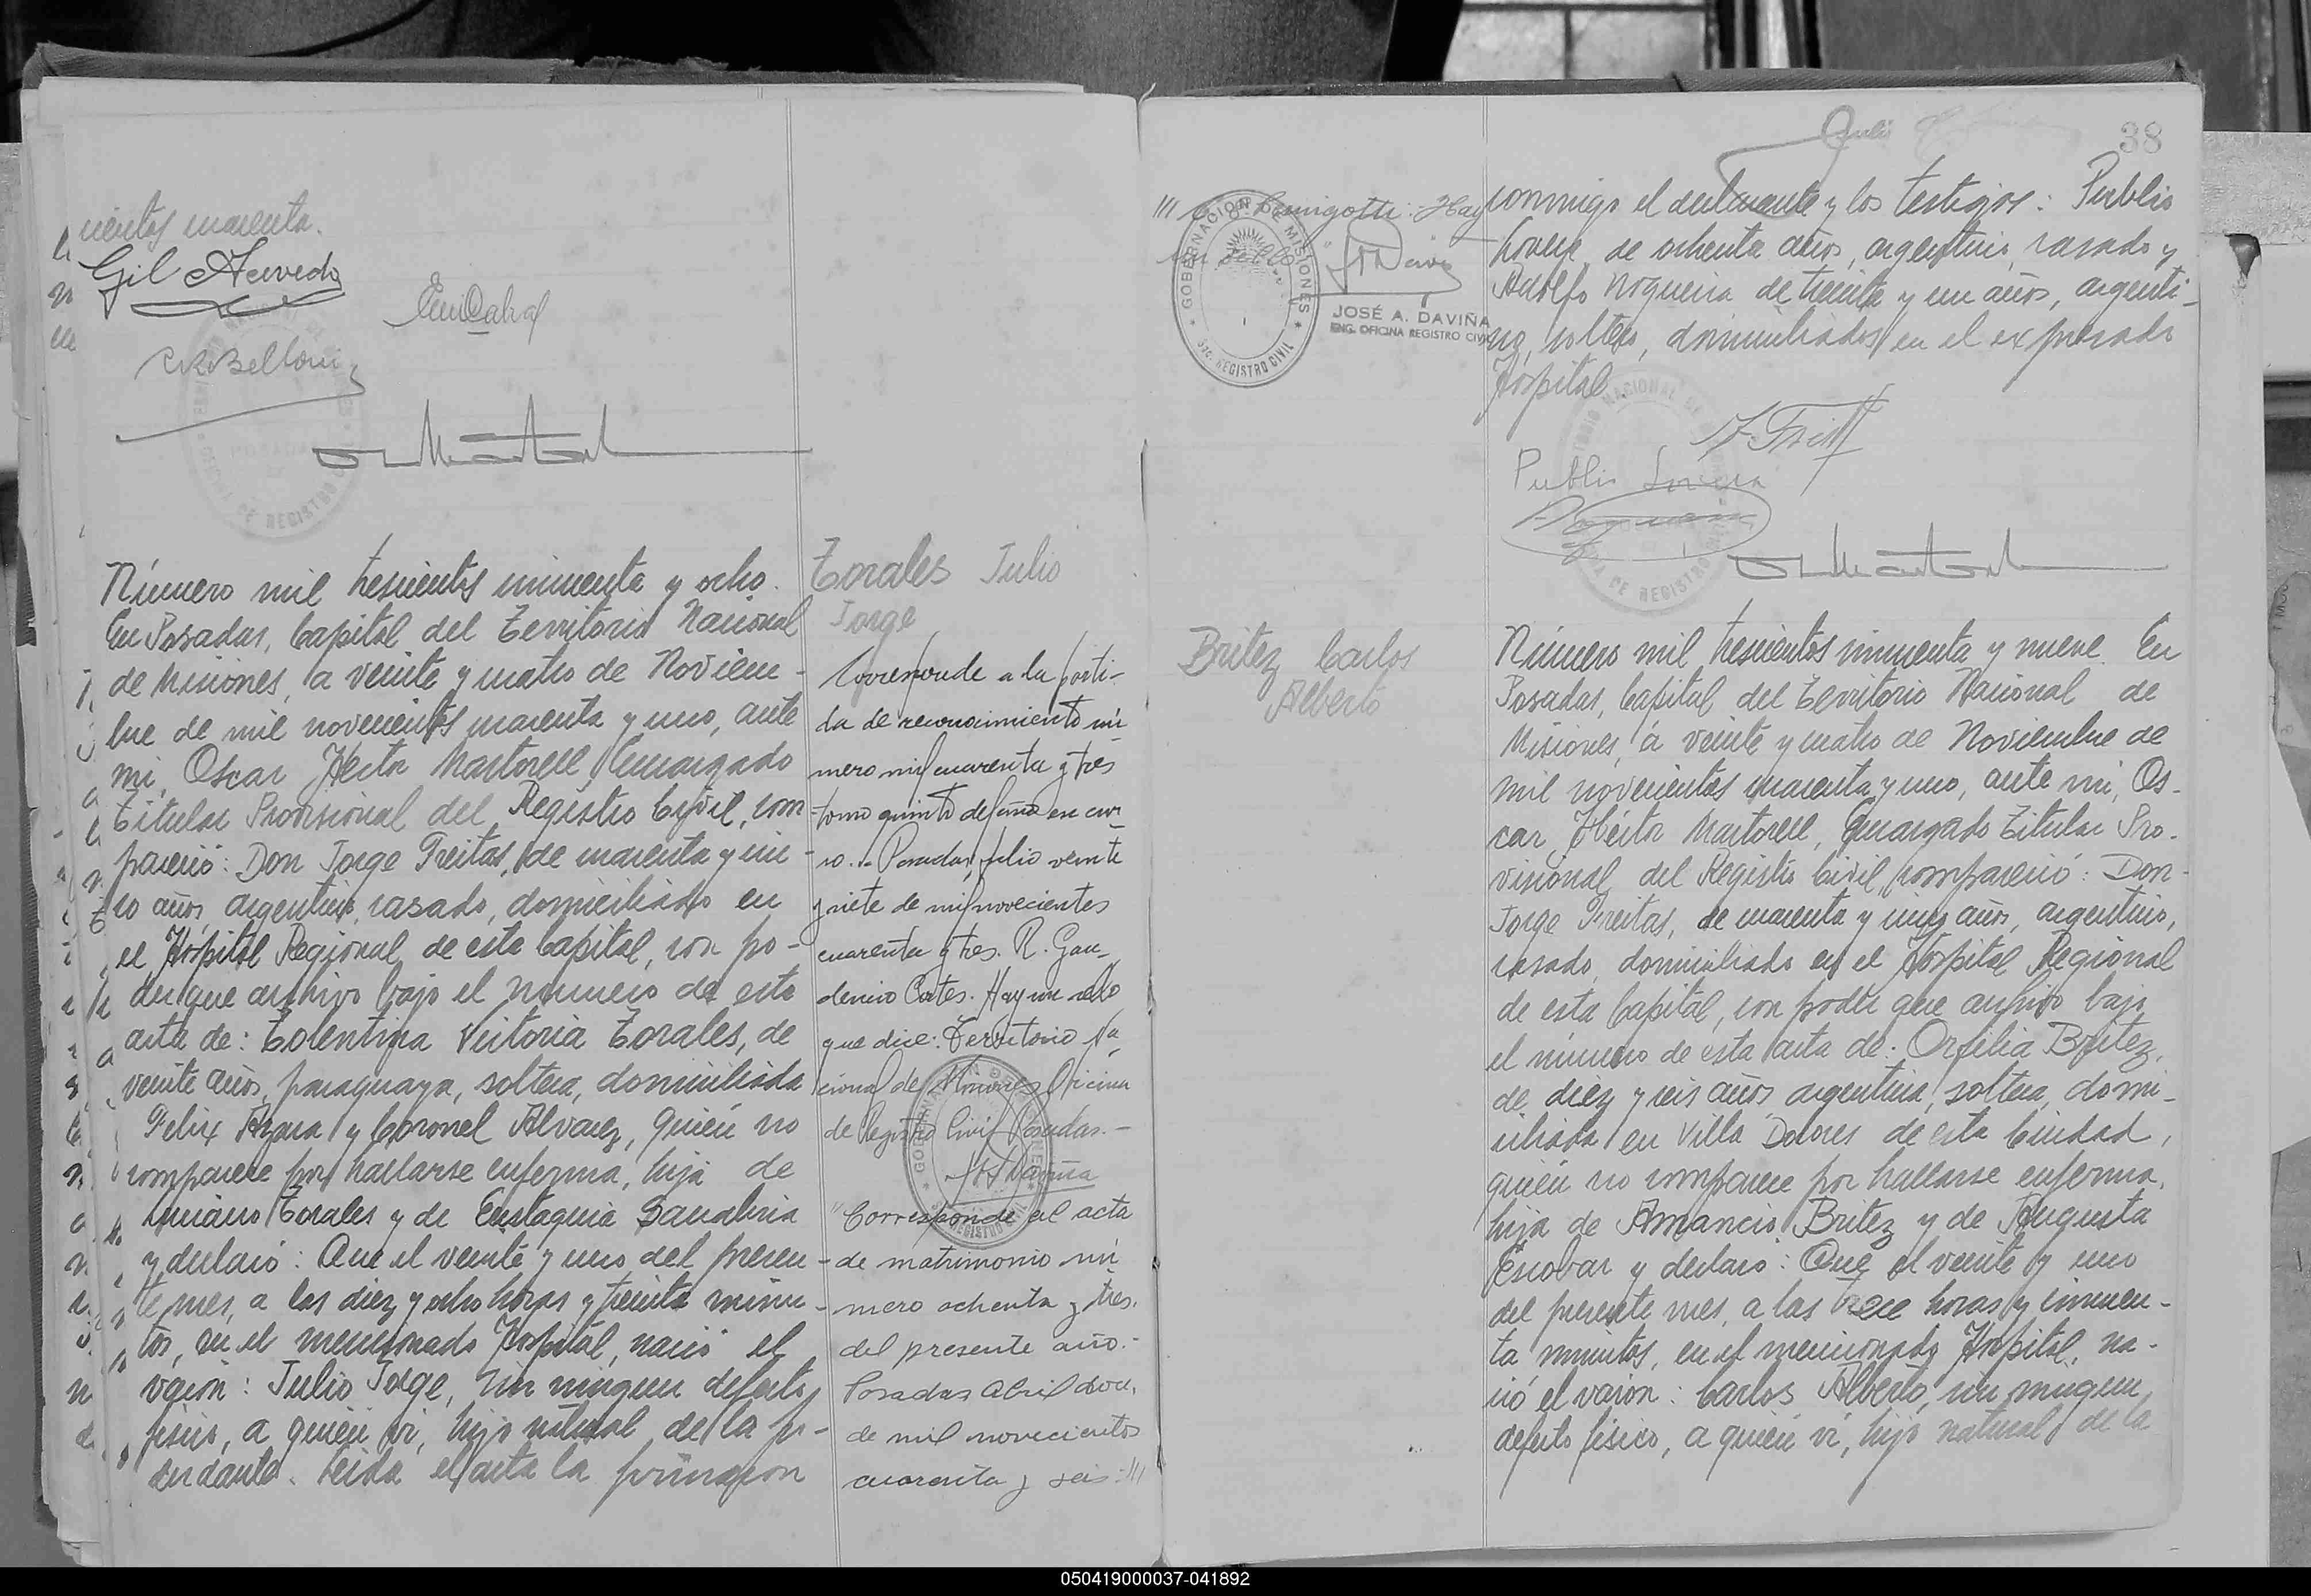 cientos cuarenta.
Gil Acevedo
Número mil trescientos cincuenta y ocho.
En Posadas, Capital del Territorio Nacional
de Misiones, a veinte y cuatro de Noviem-
bre de mil novecientos cuarenta y uno, ante
mi, Oscar Héctor Martorell, Encargado
Titular Provisional del Registro Civil, com-
pareció: Don Jorge Freitas, de cuarenta y cin-
co años, argentino, casado, domiciliado en
el Hospital Regional de esta Capital, con po-
der que archivo bajo el número de esta
acta de: Tolentina Victoria Torales, de
veinte años, paraguaya, soltera, domiciliada
Felix Azara y Coronel Alvarez, quién no
comparece por hallarse enferma, hija de
Torales y de Eustaquia Sanabria
y declaró: Que el veinte y uno del presen-
te mes, a las diez y ocho horas y treinta minu-
tos, en el mencionado Hospital, nació el
varón: Julio Jorge, sin ningun defecto
físico, a quién vi, hijo natural de la po-
derdante. Leída el acta la firmaron
Torales Julio
Jorge
Corresponde a la parti-
da de reconocimiento nú-
mero mil cuarenta y tres
tomo quinto del año en cur-
so.- Posadas, julio veinte
y siete de mil novecientos
cuarenta y tres. R. Gau-
dencio Cortes. Hay un sello
que dice: Territorio Na-
cional de Misiones Oficina
de Registro Civil Posadas.-
"Corresponde al acta
de matrimonio nú
mero ochenta y tres.
del presente año.-
Posadas Abril doce,
de mil novecientos
cuarenta y seis: ///
38
/// Hay
un sello
GOBERNACION DE MISIONES
SEC. REGISTRO CIVIL
JOSÉ A. DAVIÑA
ENC. OFICINA REGISTRO CIVIL
conmigo el declarante y los testigos: Publio
de ochenta años, argentino, casado y
Adolfo Nogueira de treinta y un años, argenti-
no, soltero, domiciliados en el expresado
Hospital.
Publio
Britez Carlos
Alberto
Número mil trescientos cincuenta y nueve. En
Posadas, Capital del Territorio Nacional de
Misiones, á veinte y cuatro de Noviembre de
mil novecientos cuarenta y uno, ante mi, Os-
car Héctor Martorell, Encargado Titular Pro-
visional del Registro Civil, compareció: Don
Jorge Freitas, de cuarenta y cinco años, argentino,
casado, domiciliado en el Hospital Regional
de esta Capital, con poder que archivo bajo
el número de esta acta de: Orfilia Britez,
de diez y seis años argentina, soltera, domi-
ciliada en Villa Dolores de esta Ciudad,
quién no comparece por hallarse enferma,
hija de Amancio Britez y de Augusta
Escobar y declaró: Que el veinte y uno
del presente mes, a las trece horas y cincuen-
ta minutos, en el mencionado Hospital, na-
ció el varón: Carlos Alberto, sin ningun
defecto físico, a quién ví, hijo natural de la
050419000037-041892